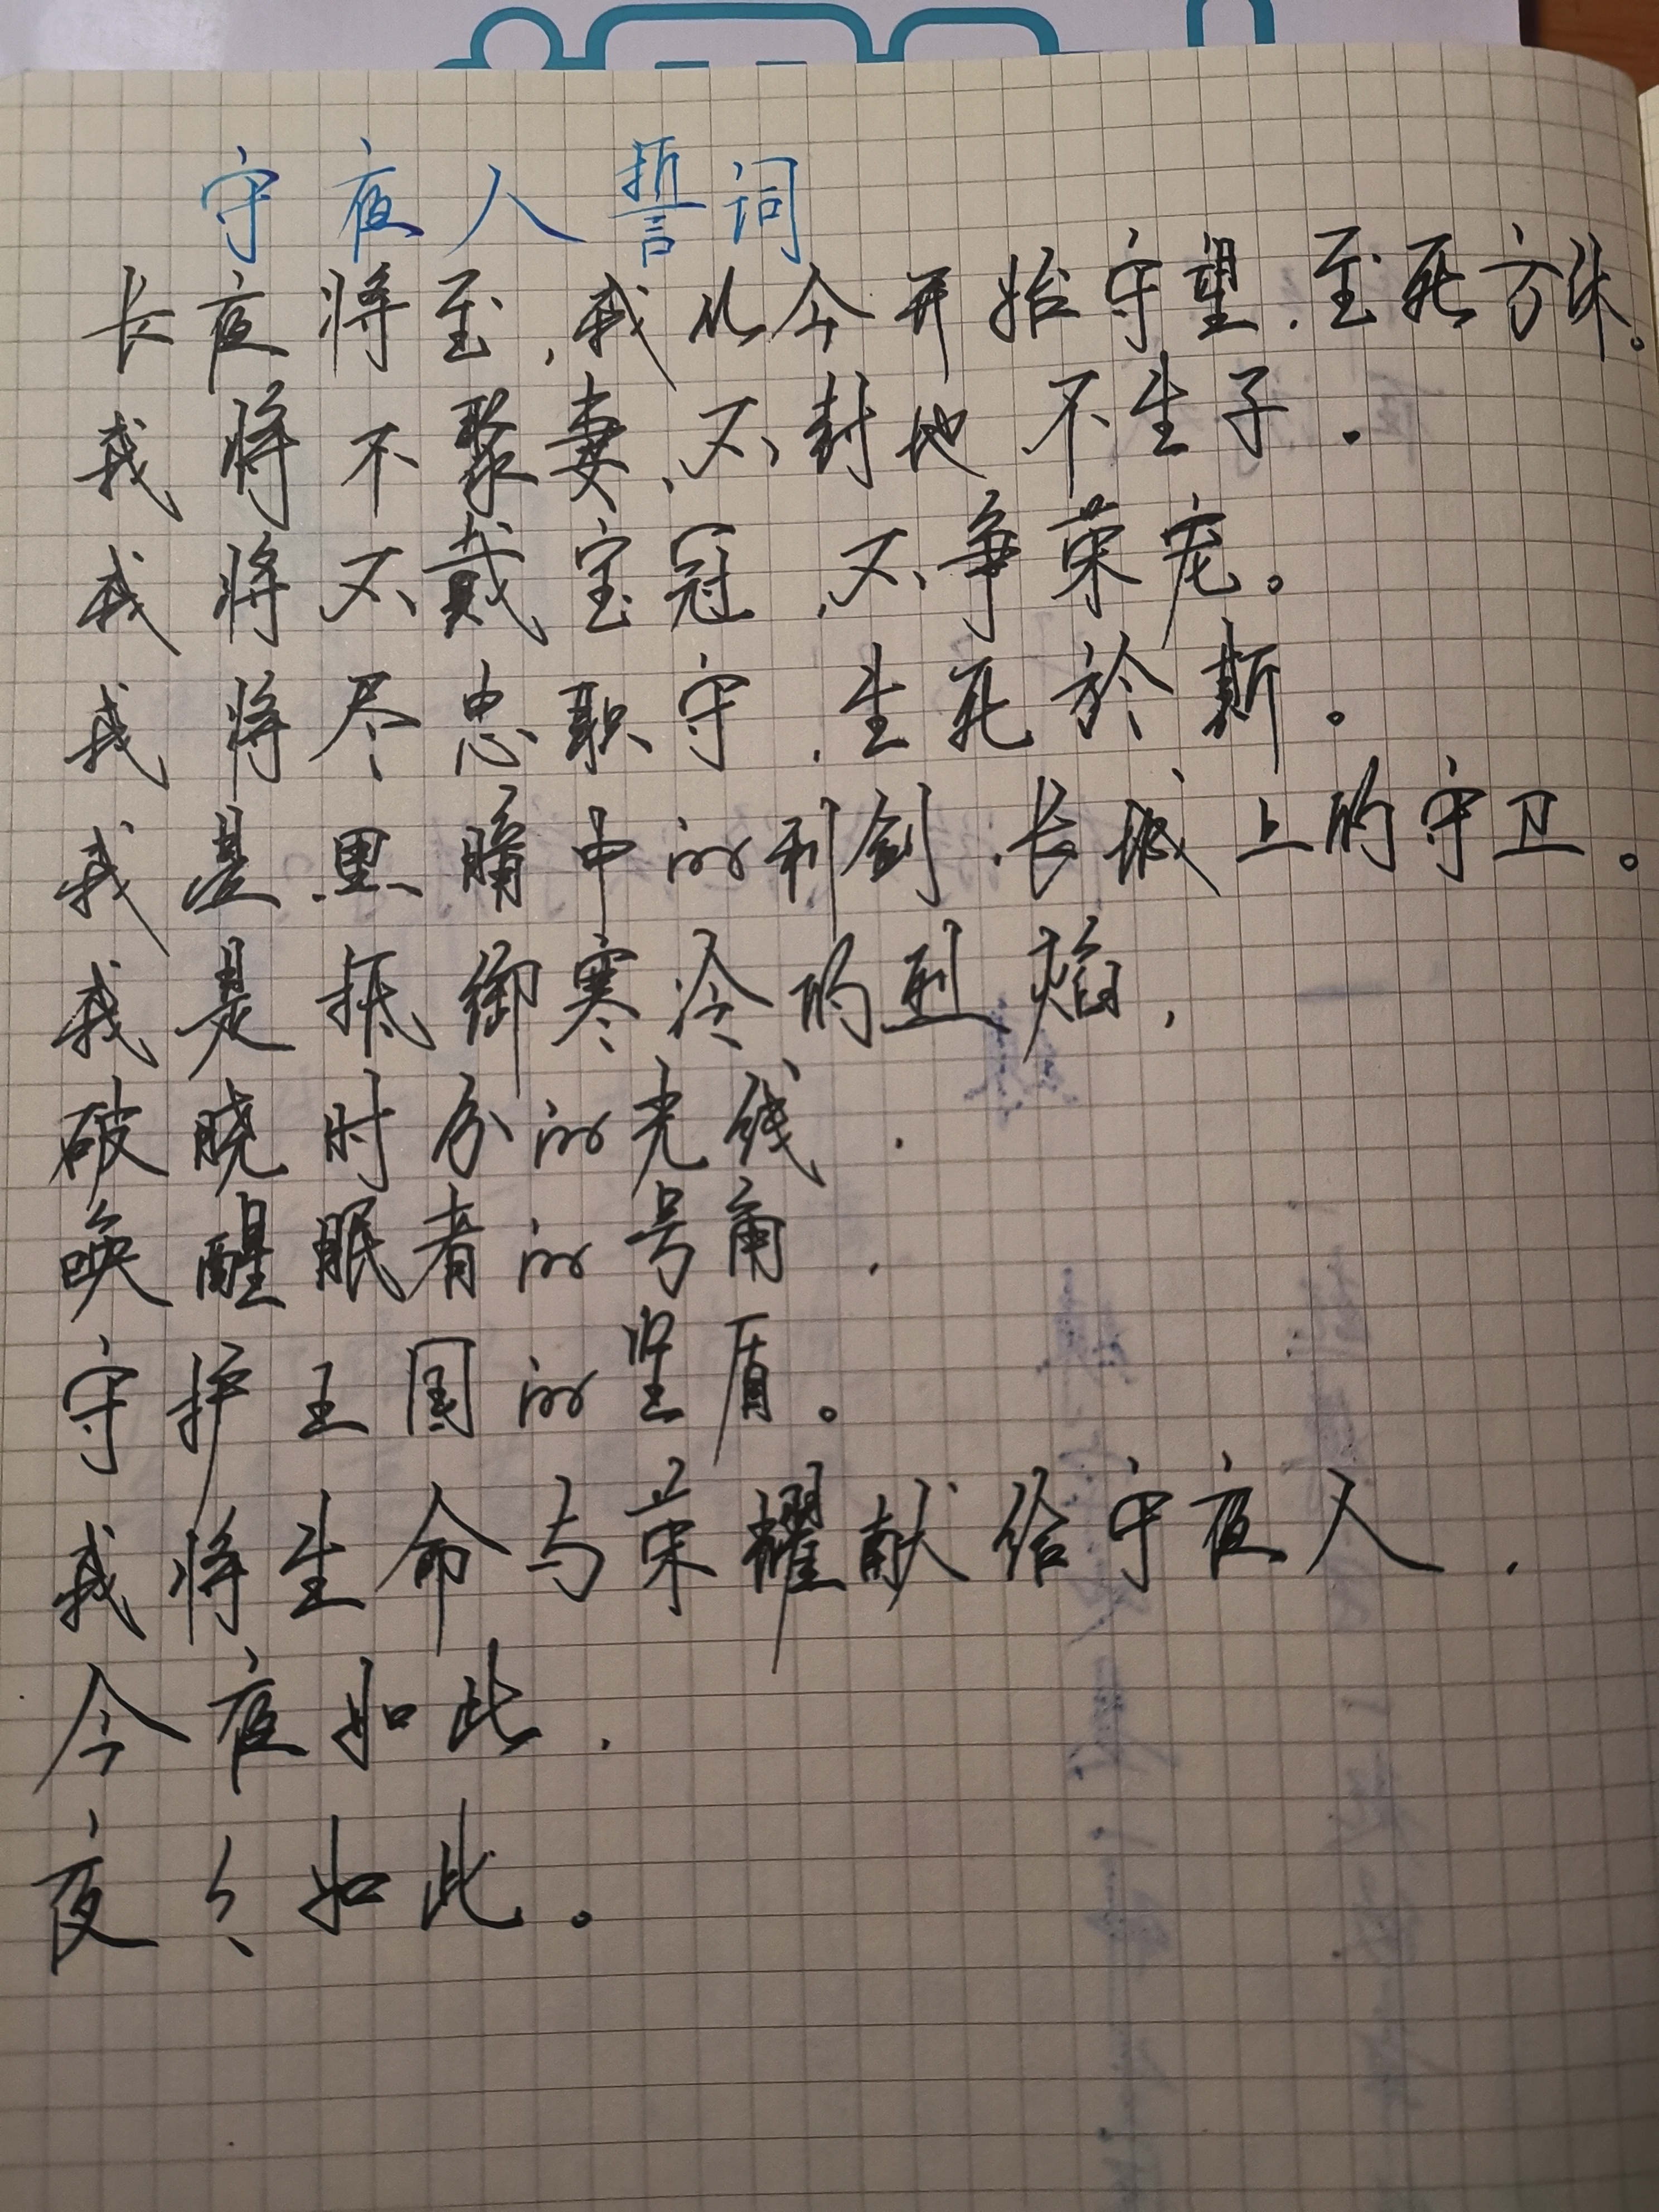 守夜人誓词
长夜将至,我从今开始守望,至死方休。
我将不娶妻,不封地 不生子.
我将不戴宝冠,不争荣宠。
我将尽忠职守,生死於斯。
我是黑暗中的利剑,长城上的守卫。
我是抵御寒冷的烈焰,
破晓时分的光线.
唤醒眠者的号角.
守护王国的坚盾。
我将生命与荣耀献给守夜人.
今夜如此.
夜々如此。